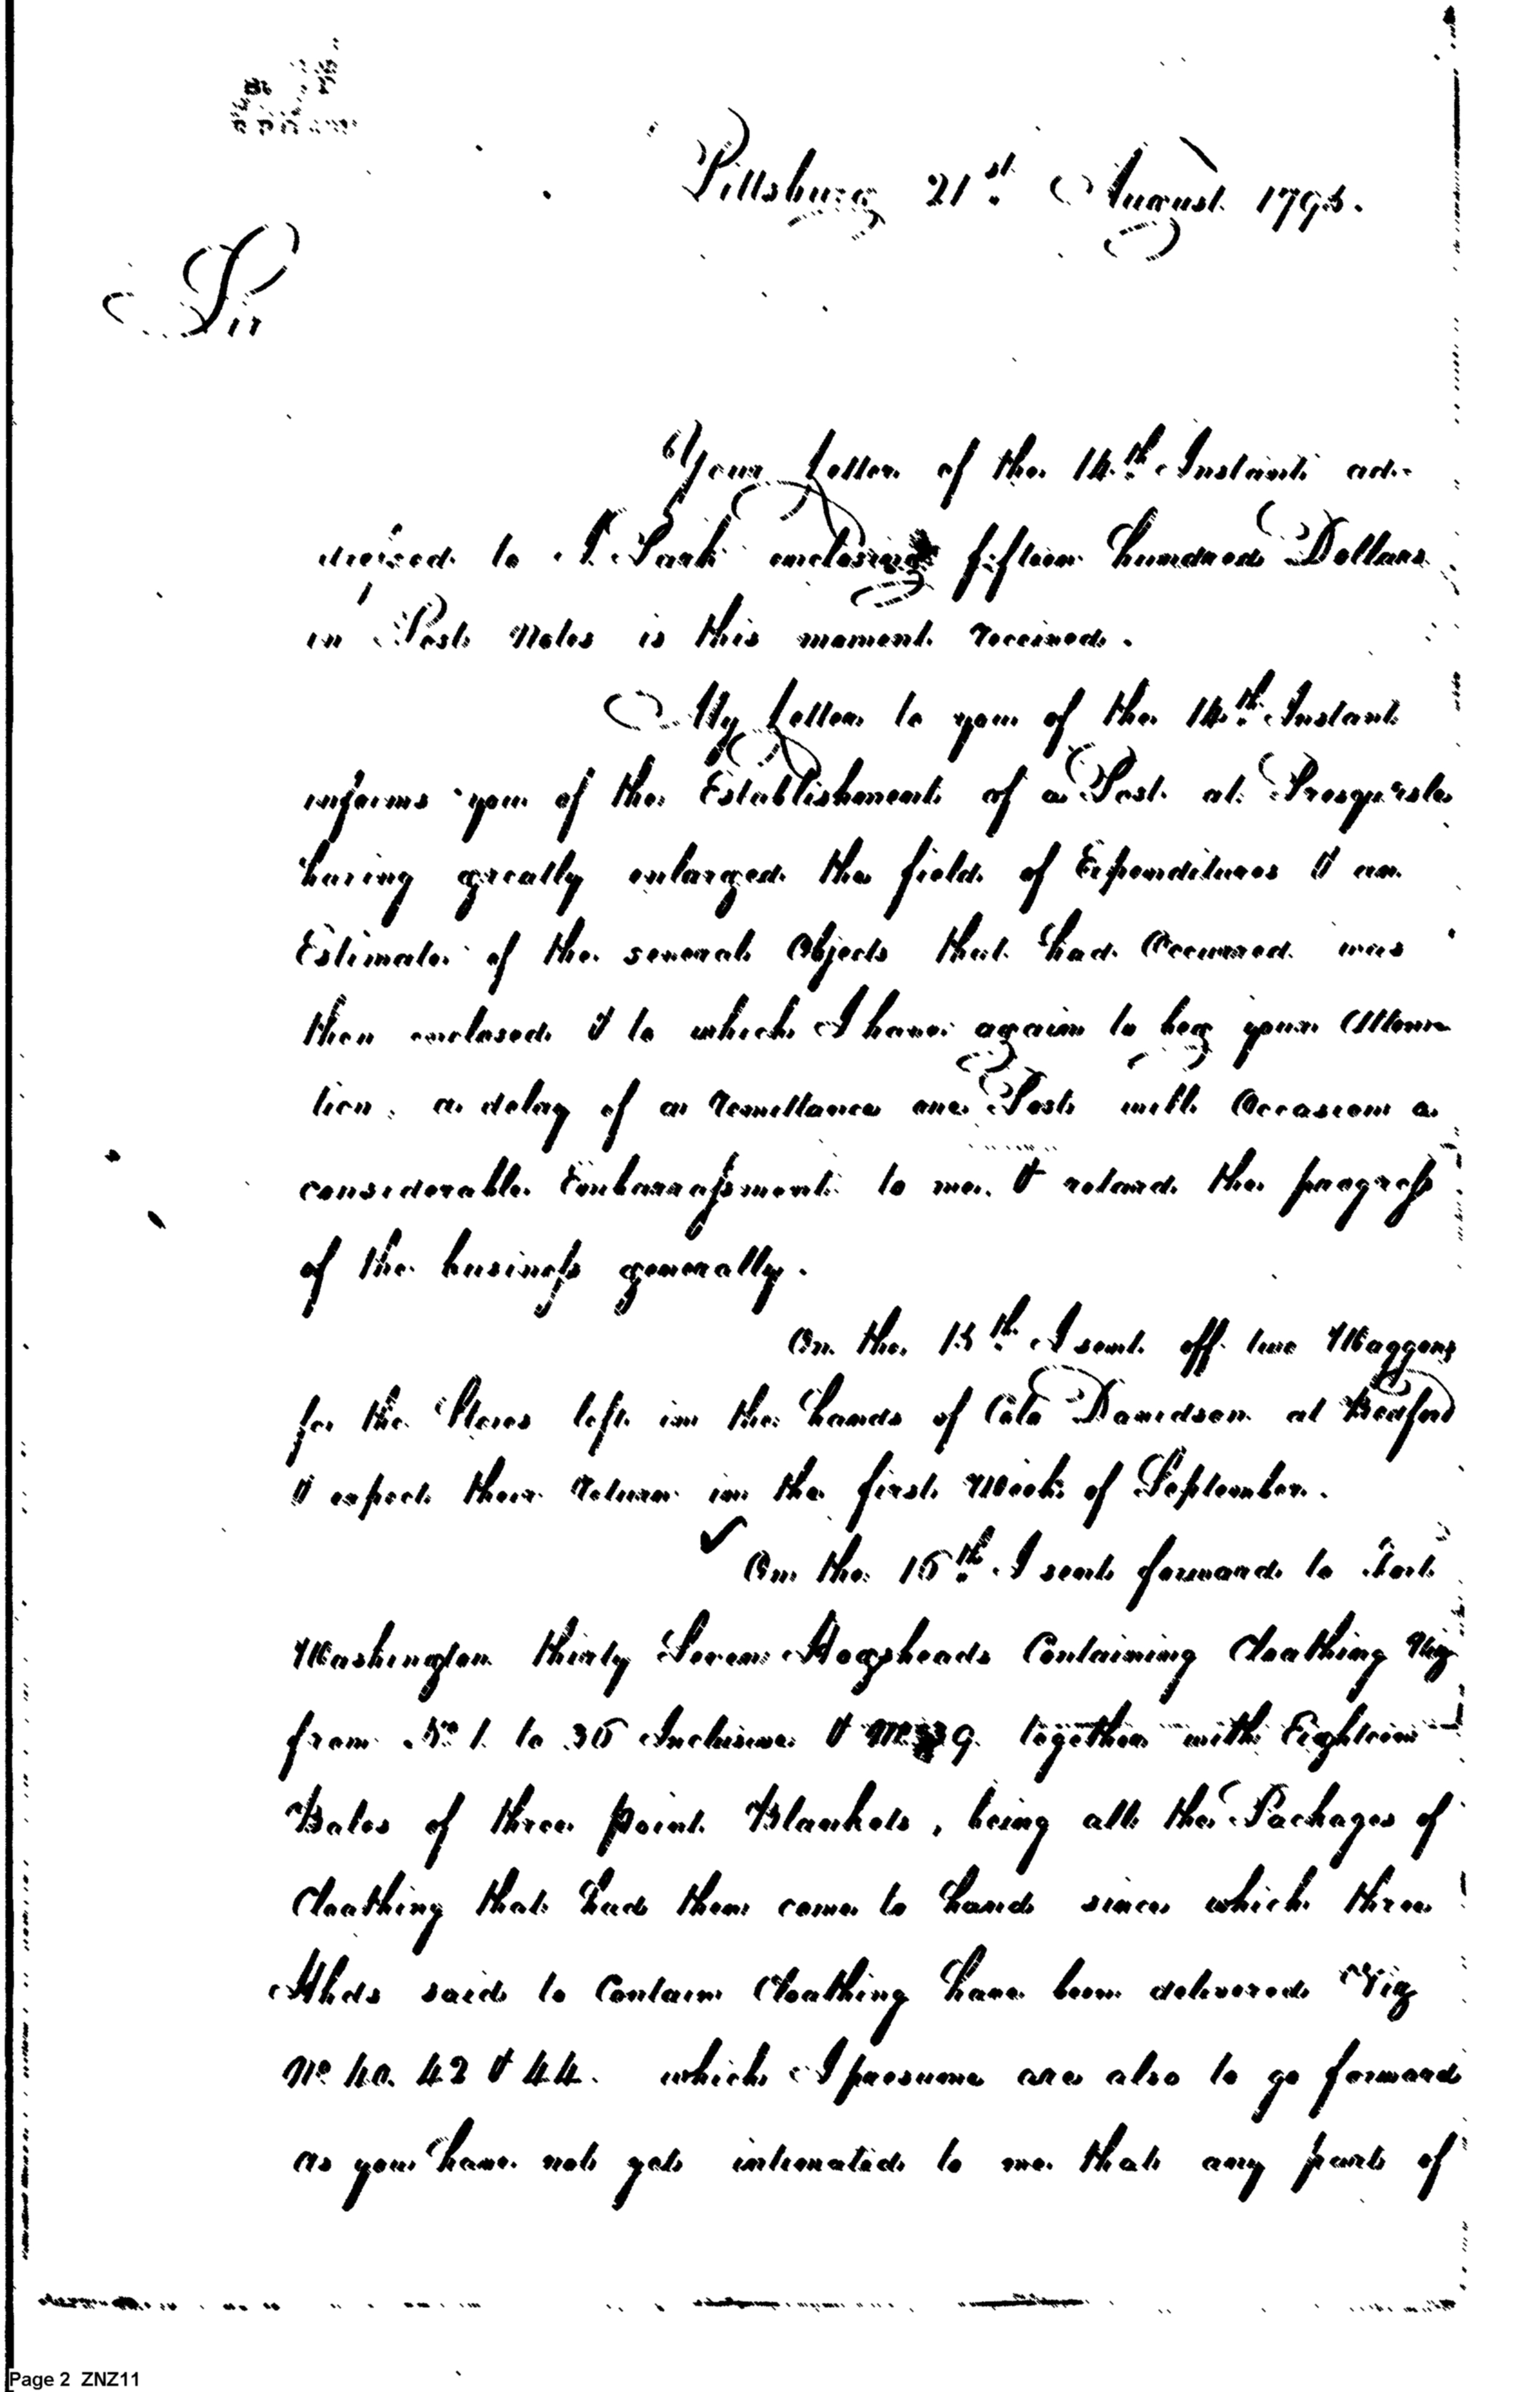 Pittsburg 21st August 1795.
Sir
Your Letter of the 14th Instant ad-
dressed to I. Sark enclosing fifteen hundred Dollars
in Post Notes is this moment received.
My Letter to you of the 14th Instant
informs you of the Establishment of a Post at Presquisle
having greatly enlarged the field of Expenditures & an
Estimate of the several Objects that had Occurred was
then enclosed & to which I have again to beg your Atten
tion, a delay of a remittance one Post will Occasion a
considerable Embarrassment to me & retard the progress
of the business generally.
On the 15th I sent off two Waggons
for the Stores left in the hands of Colo Davidson at Bedford
& expect their return in the first Week of September.
On the 16th I sent forward to Fort
Washington thirty Seven Hogsheads Containing Cloathing Viz
from No 1 to 36 Inclusive & No 39 together with Eighteen
Bales of three point Blankets, being all the Packages of
Cloathing that had then come to hand since which three
Hhds said to Contain Cloathing have been delivered Viz
No 40. 42 & 44. which I presume are also to go forward
as you have not yet intimated to me that any part of
Page 2 ZNZ11